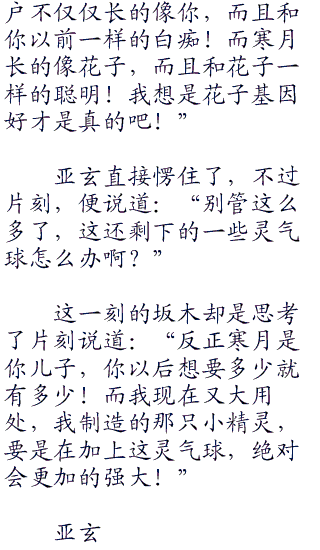 户不仅仅长的像你，而且和
你以前一样的白痴！而寒月
长的像花子，而且和花子一
样的聪明！我想是花子基因
好才是真的吧！”
亚玄直接愣住了，不过
片刻，便说道：“别管这么
多了，这还剩下的一些灵气
球怎么办啊？”
这一刻的坂木却是思考
了片刻说道：“反正寒月是
你儿子，你以后想要多少就
有多少！而我现在又大用
处，我制造的那只小精灵，
要是在加上这灵气球，绝对
会更加的强大！”
亚玄